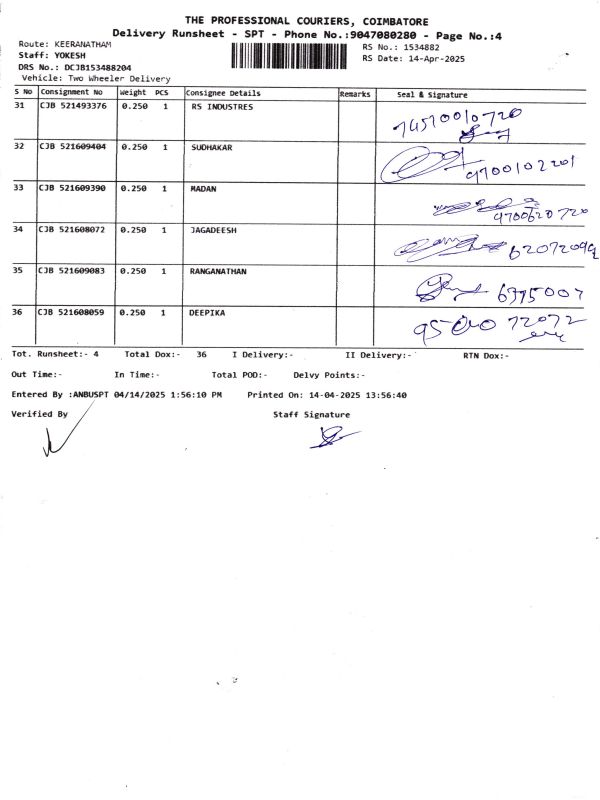 THE PROFESSIONAL COURIERS, COIMBATORE
Delivery Runsheet - SPT - Phone No.:9047080280 - Page No.:4
Route: KEERANATHAM
RS No.: 1534882
Staff: YOKESH
RS Date: 14-Apr-2025
DRS No.: DCJB153488204
Vehicle: Two Wheeler Delivery
S No Consignment No Weight PCS Consignee Details Remarks Seal & Signature
31 CJB 521493376 0.250 1 RS INDUSTRES
32 CJB 521609404 0.250 1 SUDHAKAR 9700102201
33 CJB 521609390 0.250 1 MADAN 9700620720
34 CJB 521608072 0.250 1 JAGADEESH
35 CJB 521609083 0.250 1 RANGANATHAN
36 CJB 521608059 0.250 1 DEEPIKA
Tot. Runsheet:- 4 Total Dox:- 36 I Delivery:- II Delivery:- RTN Dox:-
Out Time:- In Time:- Total POD:- Delvy Points:-
Entered By :ANBUSPT 04/14/2025 1:56:10 PM Printed On: 14-04-2025 13:56:40
Verified By Staff Signature